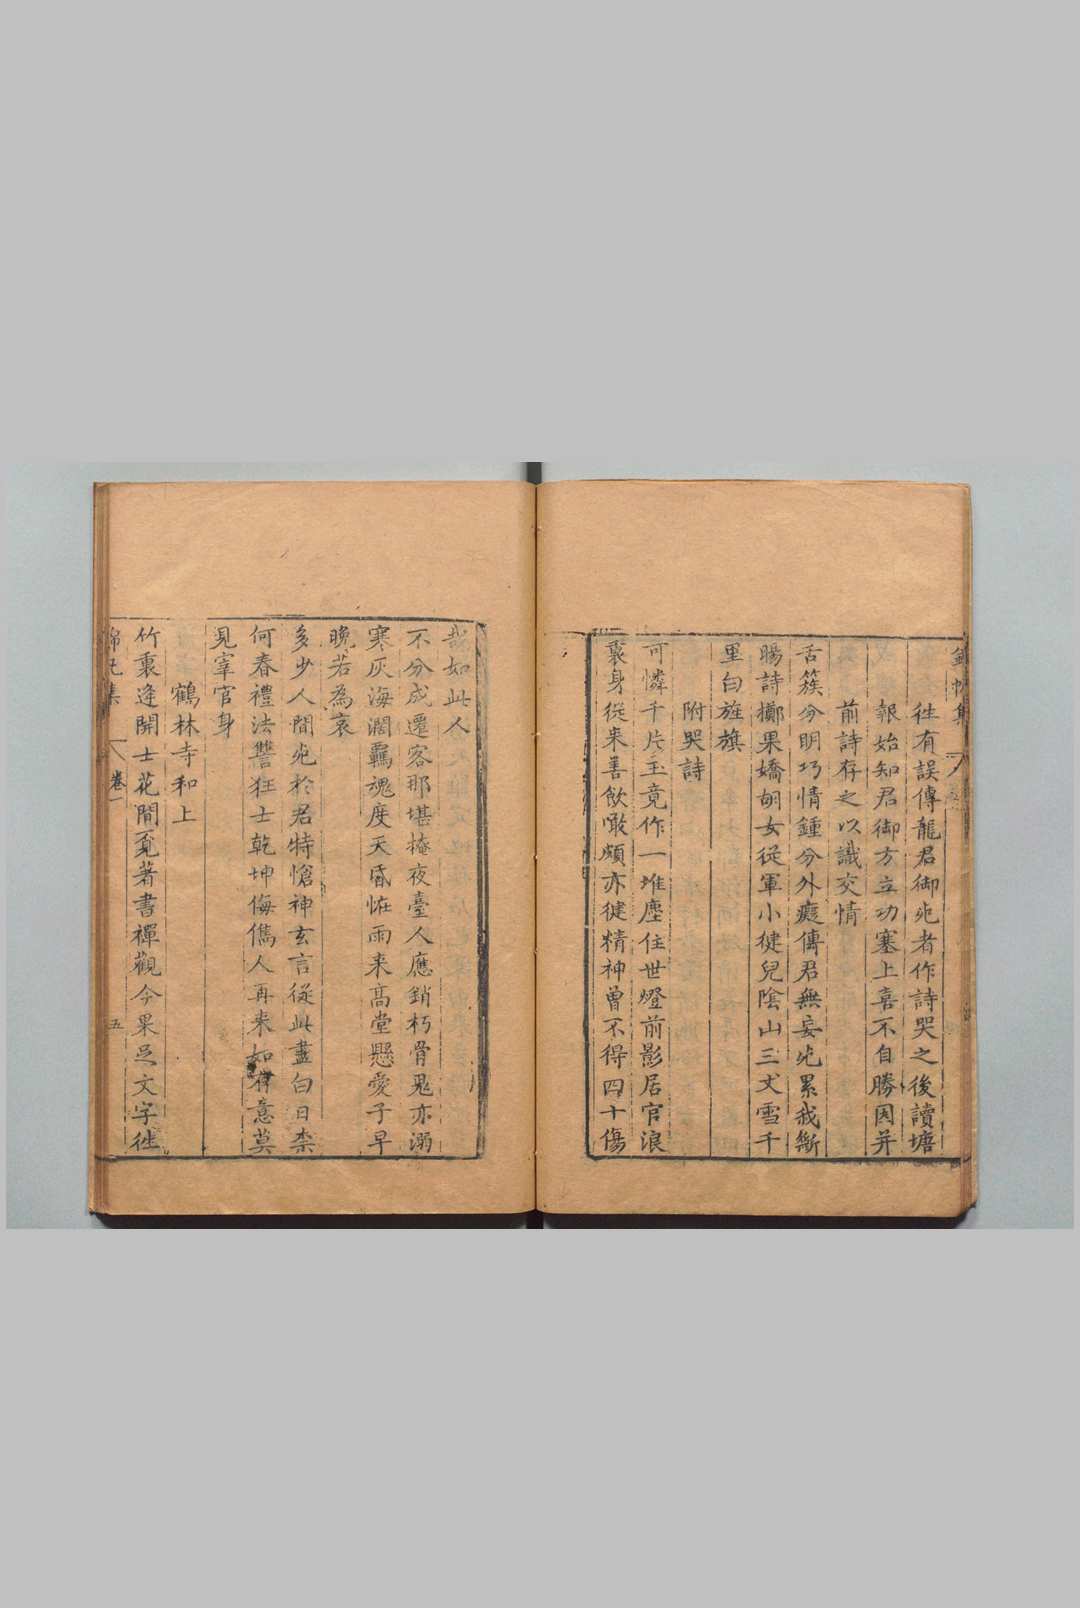 錦帆集
往有誤傳龍君御死者作詩哭之後讀塘
報始知君御方立功塞上喜不自勝因并
前詩存之以識交情
舌簇分明巧情鍾分外癡傳君無妄死累我斷
腸詩擲果嬌胡女從軍小健兒陰山三丈雪千
里白旌旗
附哭詩
可憐千片玉竟作一堆塵住世燈前影居官浪
裏身從来善飲噉頗亦健精神曾不得四十傷
哉如此人
不分成遷客那堪掩夜臺人應銷朽骨鬼亦溺
寒灰海濶羈魂度天昏恠雨来高堂懸愛子早
晚若為哀
多少人間死於君特愴神玄言從此盡白日柰
何春禮法讐狂士乾坤侮儁人再来如有意莫
見宰官身
鶴林寺和上
竹裏逢開士花間覓著書禪觀今果足文字徃
錦帆集
卷一
五